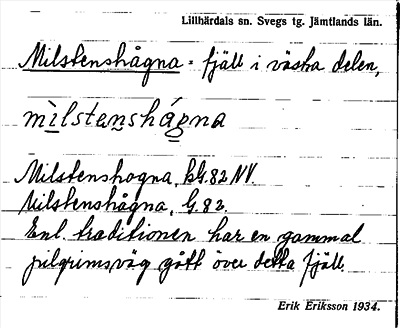 Lillhärdals sn. Svegs tg. Jämtlands län.
Milstenshågna = fjäll i västra delen,
mìlstenshågna
Milstenshogna, kG.82 NV.
Milstenshågna, G.82.
Enl traditionen har en gammal
pilgrimsväg gått över detta fjäll
Erik Eriksson 1934.